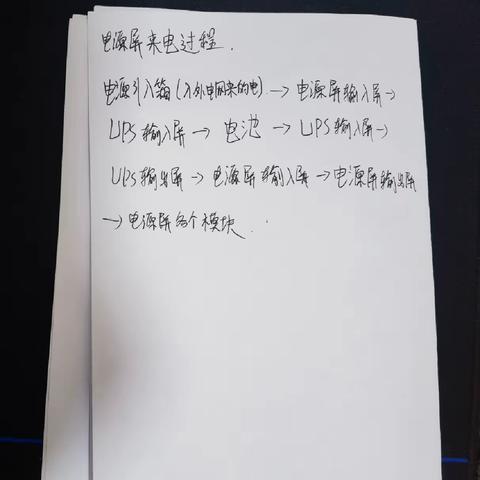 电源屏来电过程.
电源引入箱(入外电网来的电).→电源屏输入屏→
UPS输入屏→电池→UPS输入屏→
UPS输出屏→电源屏输入屏→电源屏输出屏
→电源屏各个模块.